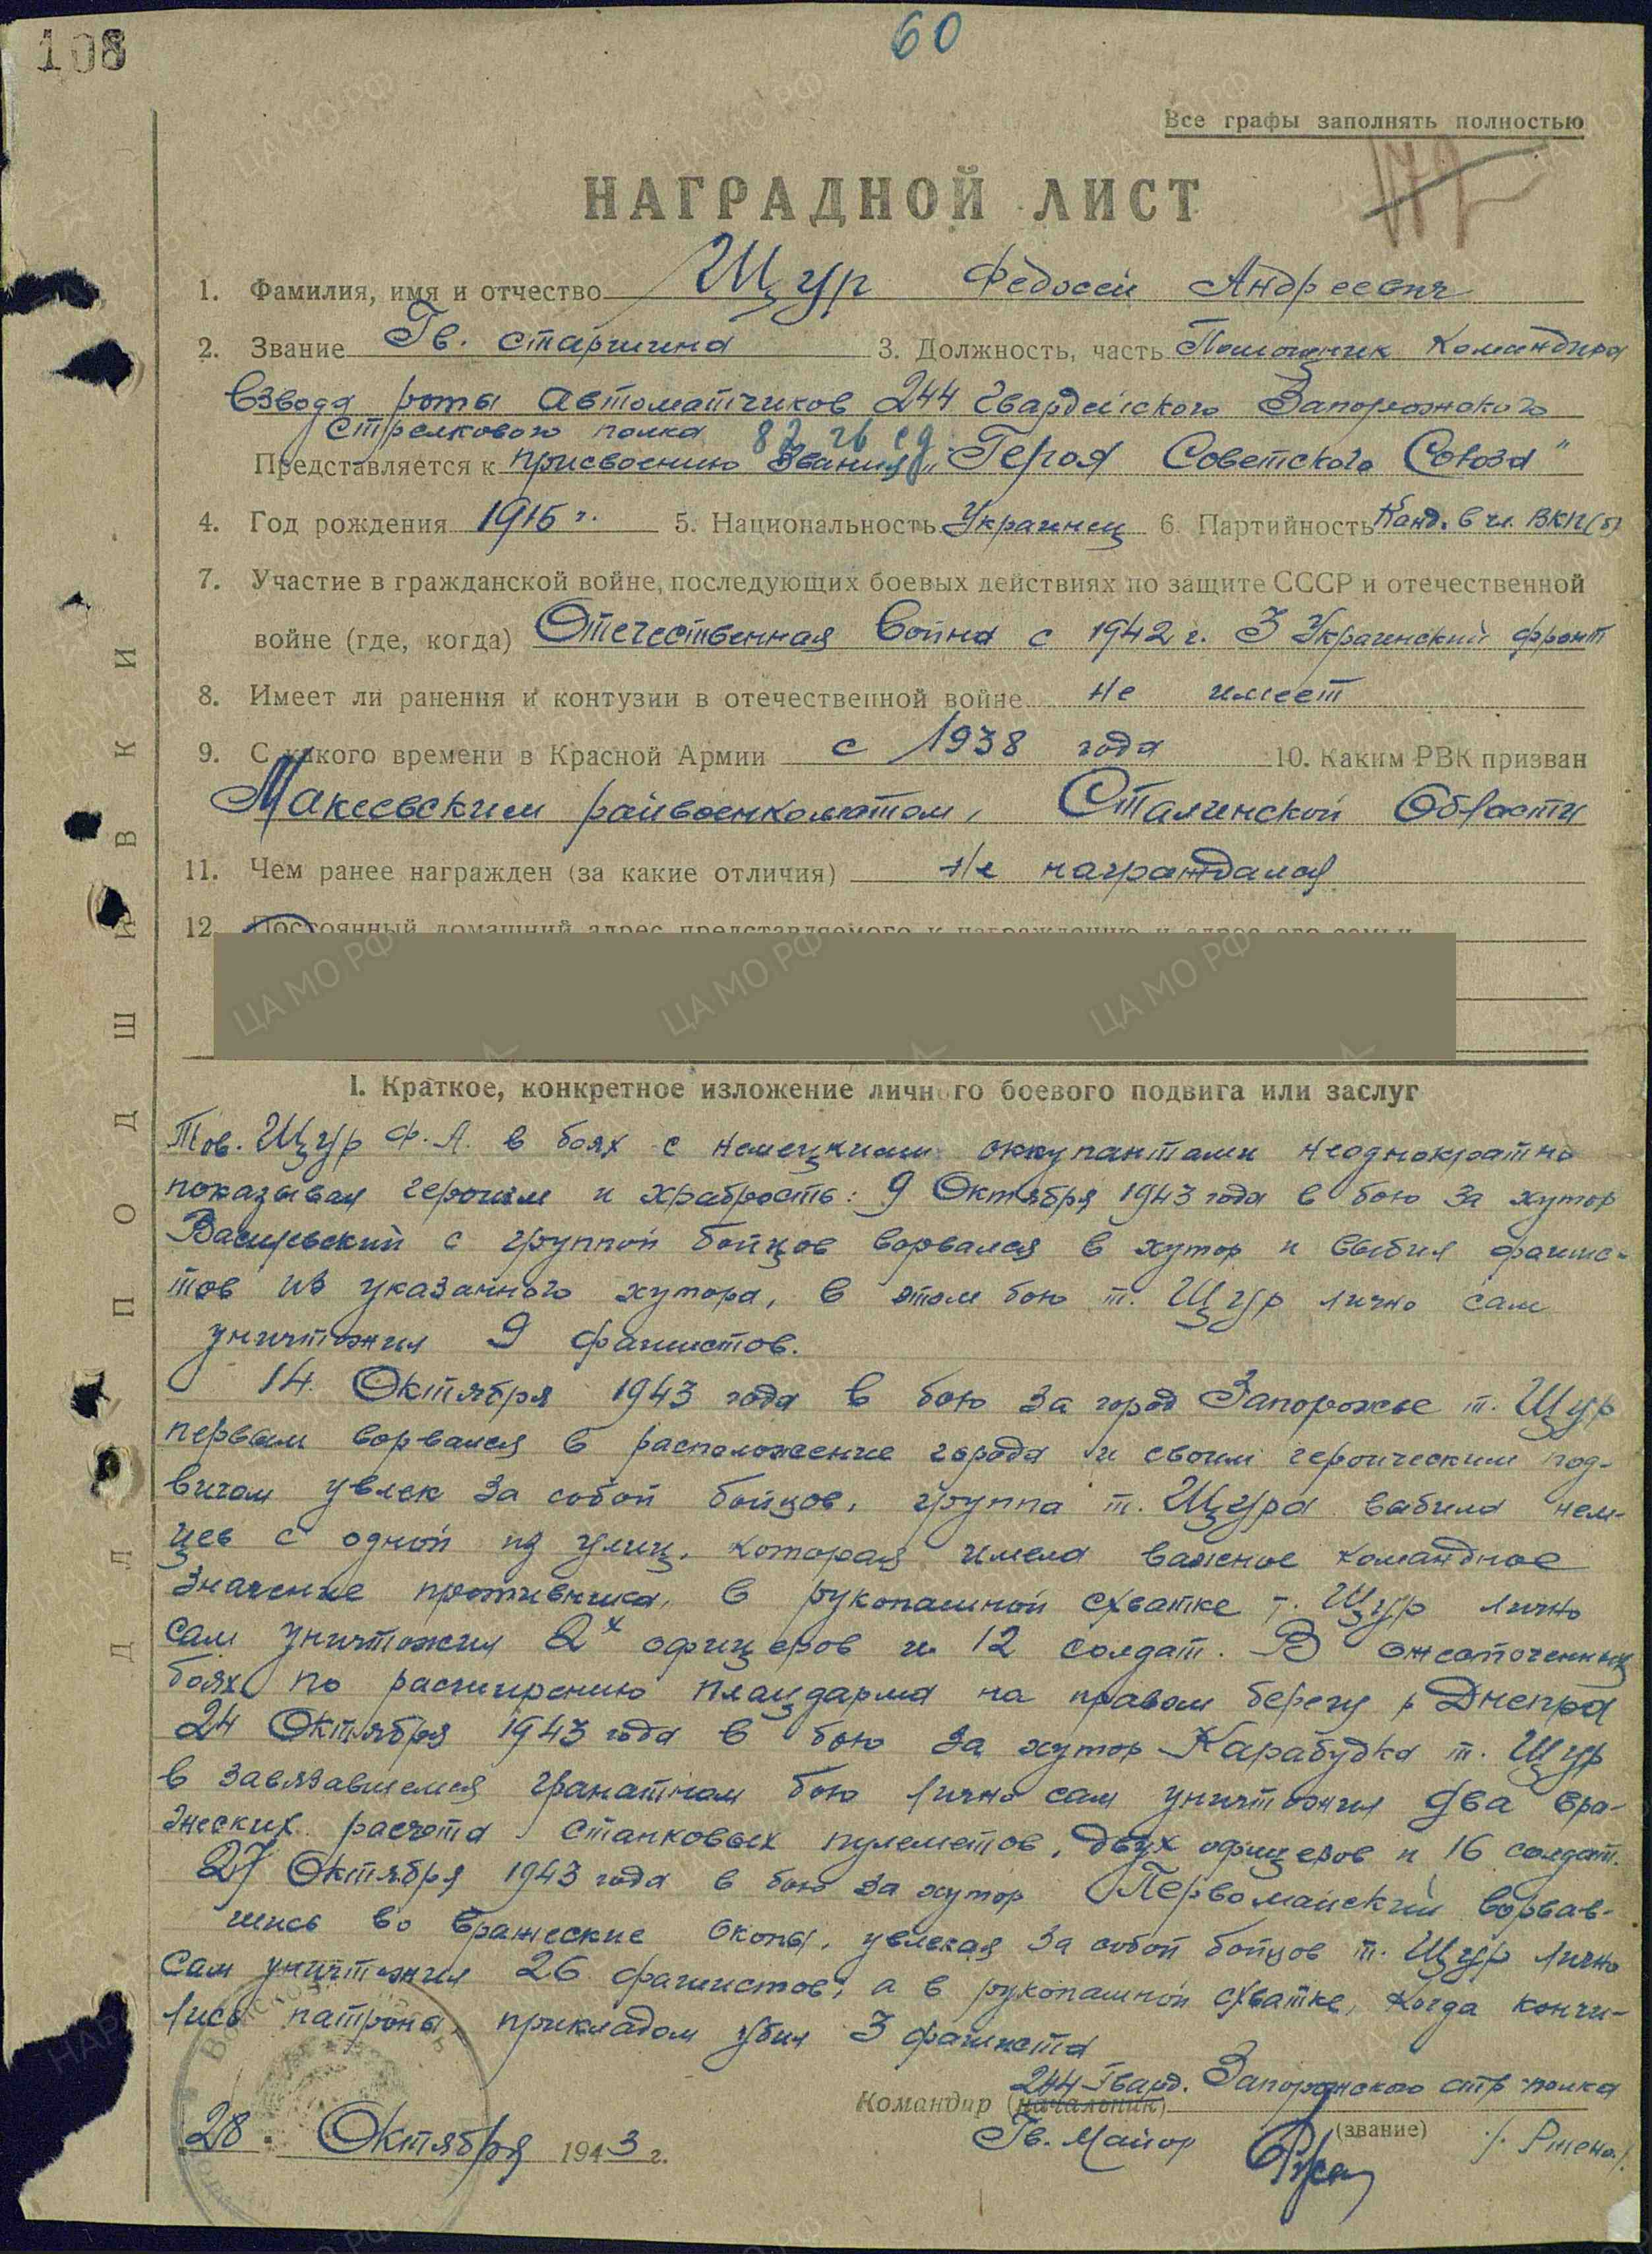 108
60
Все графы заполнять полностью
НАГРАДНОЙ ЛИСТ
1. Фамилия, имя и отчество Щур Федосей Андреевич
2. Звание Гв. старшина 3. Должность, часть Помощник Командира
взвода роты автоматчиков 244 Гвардейского Запорожского
стрелкового полка 82 гв сд
Представляется к присвоению звания „Героя Советского Союза"
4. Год рождения 1915 г. 5. Национальность Украинец 6. Партийность Канд. в чл. ВКП(б)
7. Участие в гражданской войне, последующих боевых действиях по защите СССР и отечественной
войне (где, когда) Отечественная война с 1942 г. 3 Украинский фронт
8. Имеет ли ранения и контузии в отечественной войне не имеет
9. С какого времени в Красной Армии с 1938 года 10. Каким РВК призван
Макеевским райвоенкоматом, Сталинской Области
11. Чем ранее награжден (за какие отличия) Не награждался
12. Постоянный домашний адрес представляемого к награждению и адрес его семьи
I. Краткое, конкретное изложение личного боевого подвига или заслуг
Тов. Щур Ф.А. в боях с немецкими оккупантами неоднократно
показывал героизм и храбрость: 9 Октября 1943 года в бою за хутор
Васильевский с группой бойцов ворвался в хутор и выбил фашис-
тов из указанного хутора, в этом бою т. Щур лично сам
уничтожил 9 фашистов.
14 Октября 1943 года в бою за город Запорожье т. Щур
первым ворвался в расположение города и своим героическим под-
вигом увлек за собой бойцов, группа т. Щура выбила нем-
цев с одной из улиц, которая имела важное командное
значение противника, в рукопашной схватке т. Щур лично
сам уничтожил 2х офицеров и 12 солдат. В ожесточенных
боях по расширению плацдарма на правом берегу р Днепра
24 Октября 1943 года в бою за хутор Карабудка т. Щур
в завязавшемся гранатном бою лично сам уничтожил два вра-
жеских расчета станковых пулеметов, двух офицеров и 16 солдат.
27 Октября 1943 года в бою за хутор Первомайский ворвав-
шись во вражеские окопы, увлекая за собой бойцов т. Щур лично
сам уничтожил 26 фашистов, а в рукопашной схватке, когда кончи-
лись патроны, прикладом убил 3 фашиста
244 Гвард. Запорожского стр полка
Командир (начальник)
Гв. Майор (звание)
28. Октября 1943 г.
ДЛЯ ПОДШИВКИ
ЦА МО РФ